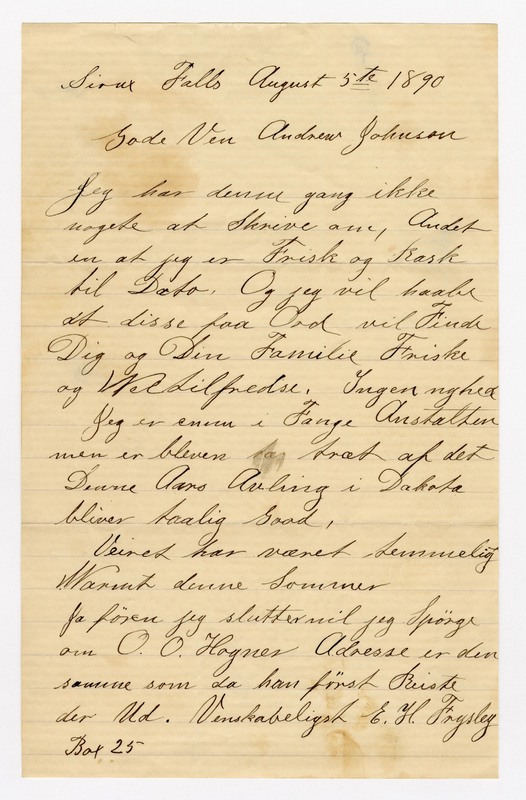 Sioux Falls August 5te 1890
Gode Ven Andrew Johnson
Jeg har denne gang ikke
nogete at Skrive om, Andet
en at jeg er Frisk og Rask
til Dato. Og jeg vil haabe
at disse faa Ord vil Finde
Dig og Din Familie Friske
og Veltilfredse. Ingen nyhed
Jeg er ennu i Fange Anstalten
men er bleven træt af det
Denne Aars Avling i Dakota
bliver taalig Good,
Veiret har været temmelig
Warmt denne Sommer
Ja fören jeg slutter vil jeg Spörge
om O. O. Hogner Adresse er den
samme som da han först Reiste
der Ud. Venskabeligst E. H. Frysley
Box 25